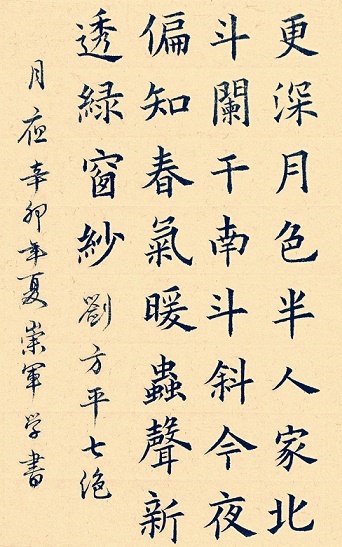 更深月色半人家北
斗闌干南斗斜今夜
偏知春氣暖蟲聲新
透綠窗紗 劉方平七絕
月夜 辛卯年夏崇軍学書